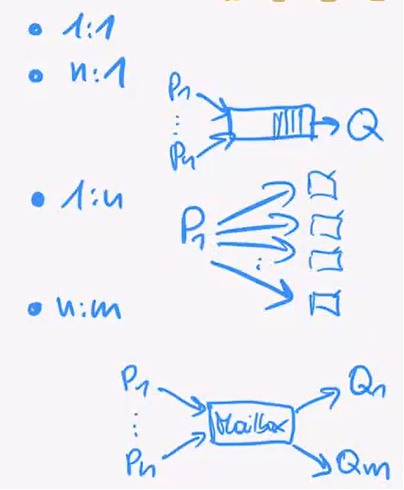 • 1:1
• n:1
P1
⋮
Pn
Q
• 1:n
P1
⋮
• n:m
P1
⋮
Pn
Mailbox
Q1
Qm